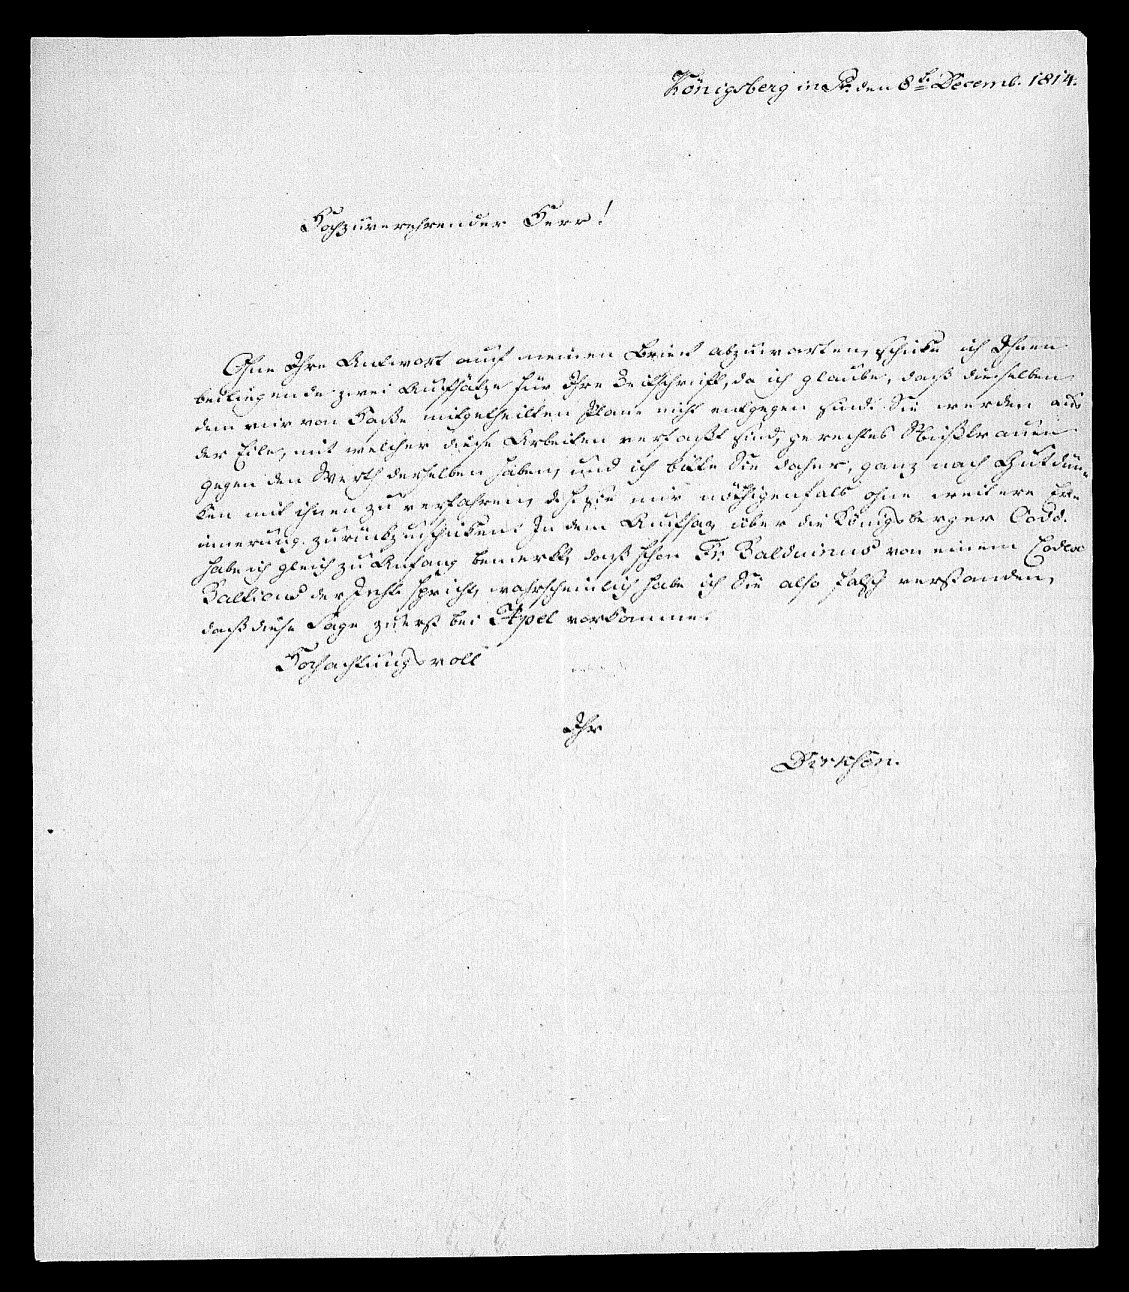 Königsberg in Pr. den 8t. Decemb. 1814.
Hochzuverehrender Herr!
Ohne Ihre Antwort auf meinen Brief abzuwarten, schicke ich Ihnen
beiliegende zwei Aufsätze für Ihre Zeitschrift, da ich glaube, daß dieselben
dem mir von Haße mitgetheilten Plane nicht entgegen sind. Sie werden aus
der Eile, mit welcher diese Arbeiten verfaßt sind, gerechtes Mißtrauen
gegen den Werth derselben haben, und ich bitte Sie daher, ganz nach Gutdün-
ken mit ihnen zu verfahren, d. h. sie mir nöthigenfals ohne weitere Erin-
nerung zurückzuschicken. In dem Aufsaz über die Königsberger Codd.
habe ich gleich zu Anfang bemerkt, daß schon Fr. Balduinus von einem Codex
der Inst. spricht, wahrscheinlich habe ich Sie also falsch verstanden,
daß diese Sage zuerst bei Apel vorkomme.
Hochachtungsvoll
Ihr
Dirksen.